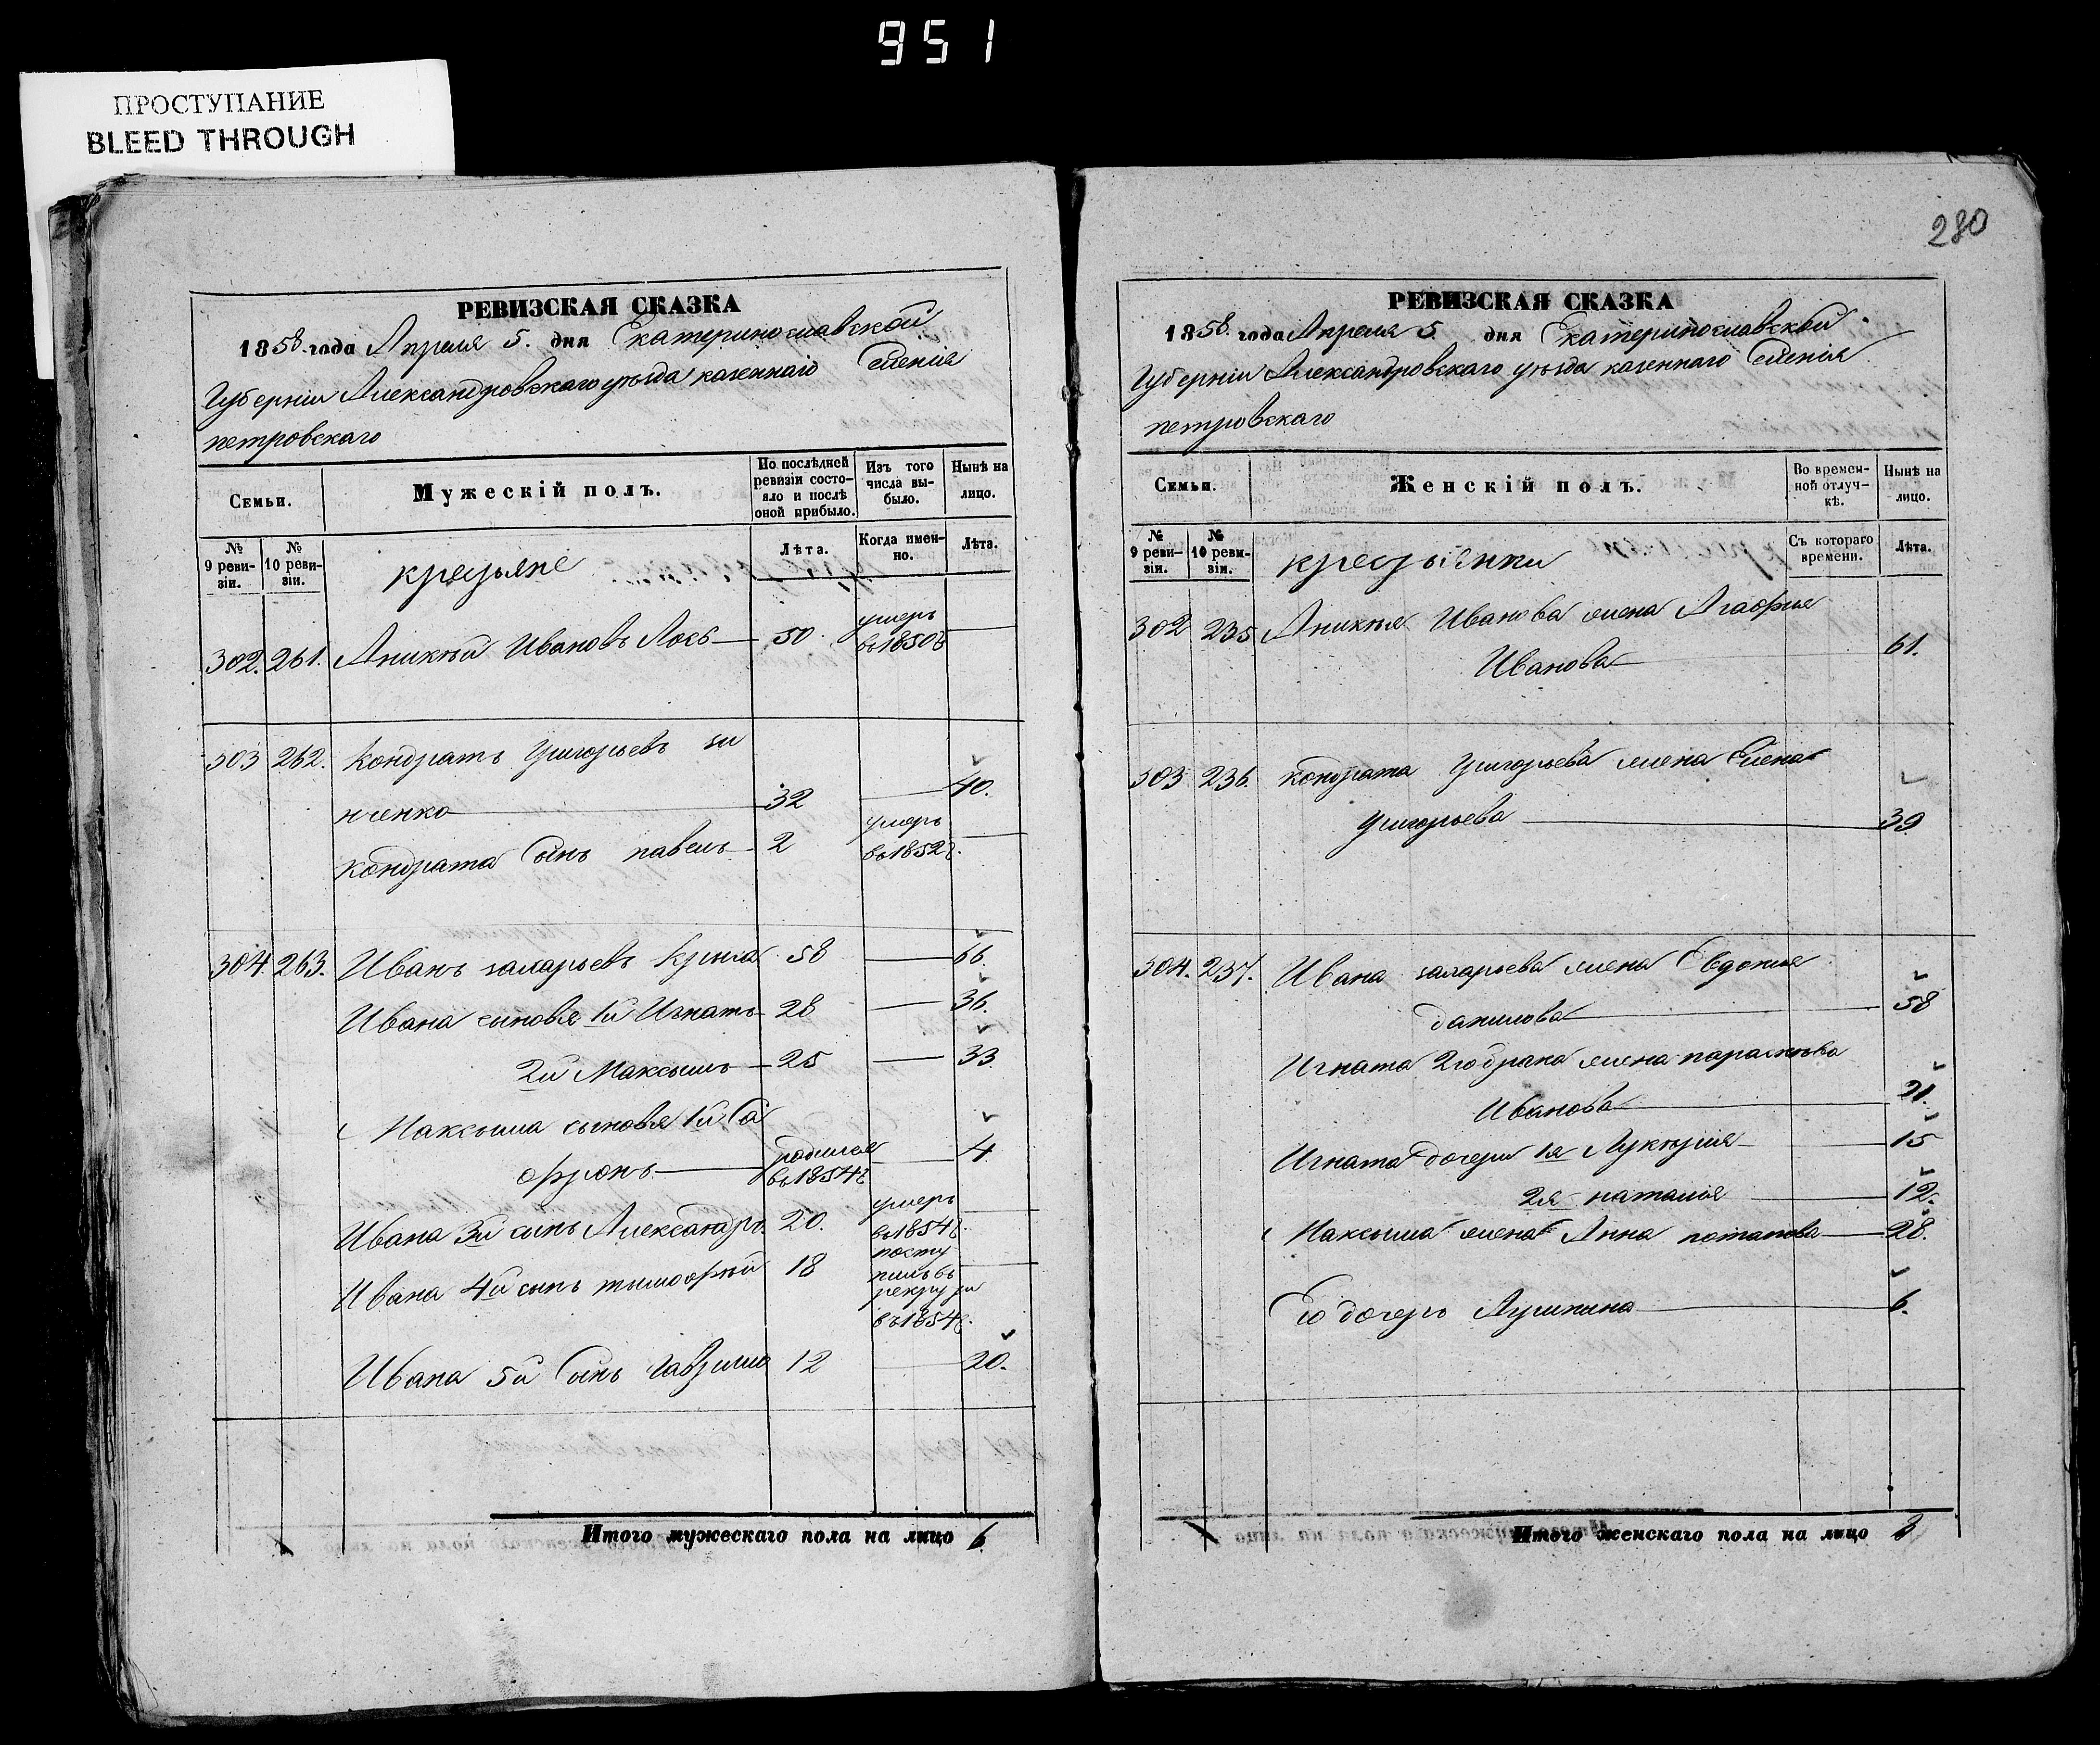 951
ПРОСТУПАНИЕ
BLEED THROUGH
РЕВИЗСКАЯ СКАЗКА
1858 года Апреля 5. дня Екатеринославской
Губерніи Александровского уезда казенного Селенія
петровского
Семьи.
Мужескій полъ.
По послѣдней ревизіи состояло и послѣ оной прибыло.
Изъ того числа выбыло.
Нынѣ на лицо.
№ 9 ревизіи.
№ 10 ревизіи.
крестьяне
Лѣта.
Когда именно.
Лѣта.
302. 261. Аникѣй Ивановъ Лось 50 умеръ въ 1850 г
303 262. Кондратъ Григорьевъ
нченко 32 40.
Кондрата Сынъ павелъ 2 умеръ въ 1852 г.
304 263. Иванъ захарьевъ Крыса 58 66.
Ивана сыновья 1й Игнатъ 28 36.
2й Максымъ 25 33.
Максыма сыновья 1й Са
фронъ родился въ 1854 г 4.
Ивана 3й сынъ Александръ 20. умеръ въ 1854 г.
Ивана 4й сынъ тымофѣй 18 поступилъ въ рекруты въ 1854 г.
Ивана 5й Сынъ Гаврыло 12 20.
Итого мужескаго пола на лицо 6.
280
РЕВИЗСКАЯ СКАЗКА
1858. года Апреля 5 дня Екатеринославской
Губерніи Александровского уезда казенного Селенія
петровского
Семьи.
Женскій полъ.
Во временной отлучкѣ.
Нынѣ на лицо.
№ 9 ревизіи.
№ 10 ревизіи.
крестьянки
Съ котораго времени.
Лѣта.
302 235 Аникѣя Иванова жена Агафия
Иванова 61.
303 236. Кондрата Григорьева жена Елена
Григорьева 39
304. 237. Ивана захарьева жена Евдокия
данилова 58
Игната 2го брака жена параскѣва
Иванова 21.
Игната дочери 1я Лукерия 15
2я наталия 12.
Максыма жена Анна потапова 28.
Его дочерь 6.
Итого женскаго пола на лицо